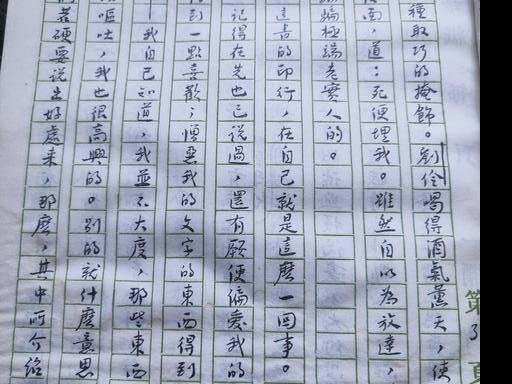 種取巧的掩飾。劉伶喝得酒氣薰天,使
面,道:死便埋我。雖然自以為放達,
騙極端老實人的。
這書的印行,在自己就是這麼一回事。
記得在先也已說過,還有願使偏愛我的
到一點喜歡;憎惡我的文字的東西得到
我自己知道,我並不大度,那些東西
嘔吐,我也很高興的。別的就什麼意思
若硬要說出好處來,那麼,其中所介紹
第3頁